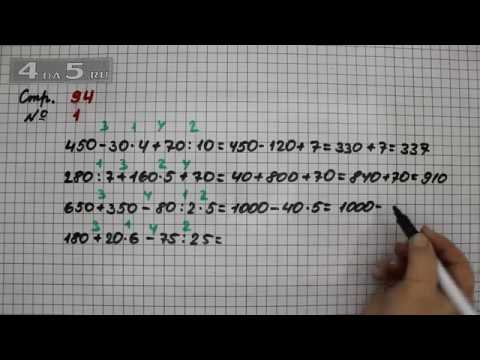 4 DA 5.RU
Стр. 94
№ 1
3 1 4 2
450-30·4+70:10=450-120+7=330+7=337
1 3 2 4
280:7+160·5+70=40+800+70=840+70=910
3 4 1 2
650+350-80:2·5=1000-40·5=1000-
3 1 4 2
180+20·6-75:25=